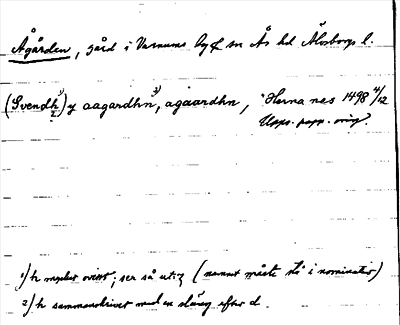 Ågården, gård i Varnums by o sn Ås hd Älvsborgs l.
(Svendh 1)) y aagardhn 2), agaardhn, Herna nes 1498 4/12
Upps. papp. orig.
1) h mycket osäkert; ser så ut (namnet måste stå i nominativ)
2) h sammanskrivet med en släng efter d.